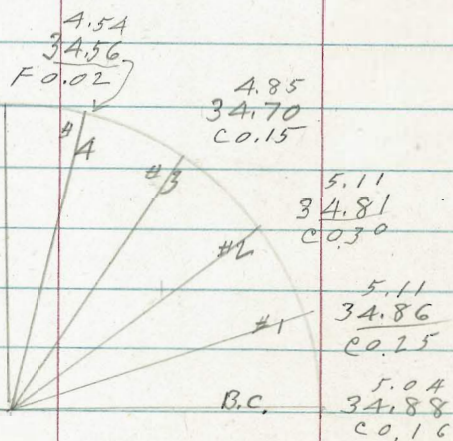 4.54
34.56
F 0.02
4.85
34.70
C 0.15
#4
#3
5.11
34.81
C 0.30
#2
5.11
34.86
C 0.25
#1
5.04
B.C. 34.88
C 0.16